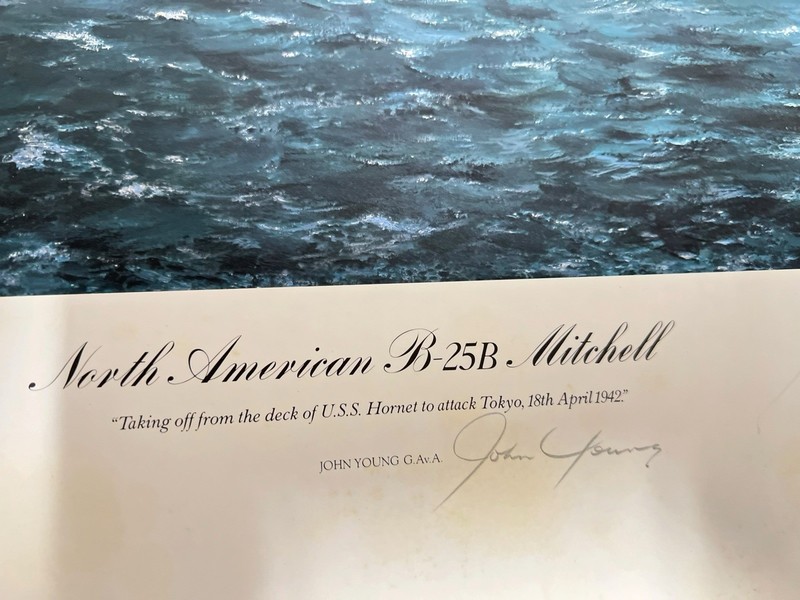 North American B-25B Mitchell
"Taking off from the deck of U.S.S. Hornet to attack Tokyo, 18th April 1942."
JOHN YOUNG G.Av.A. John Young